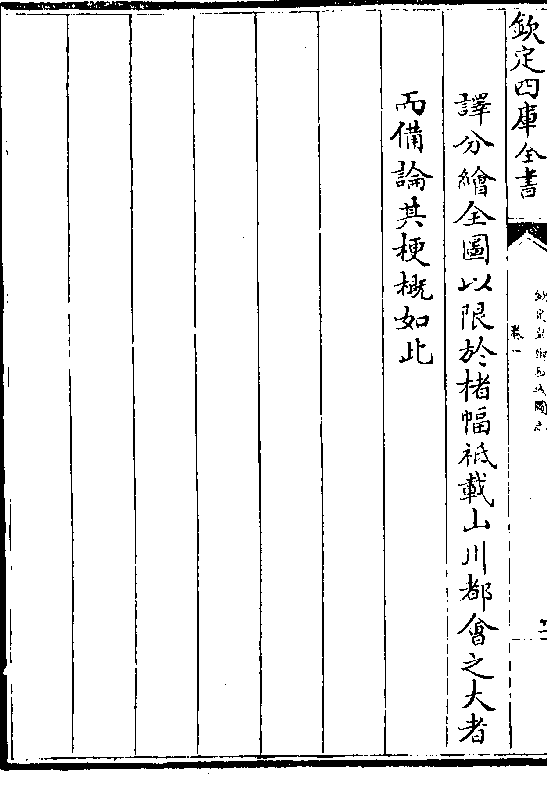 欽定四庫全書
卷一
譯分繪全圖以限於楮幅祗載山川都會之大者
而備論其梗概如此